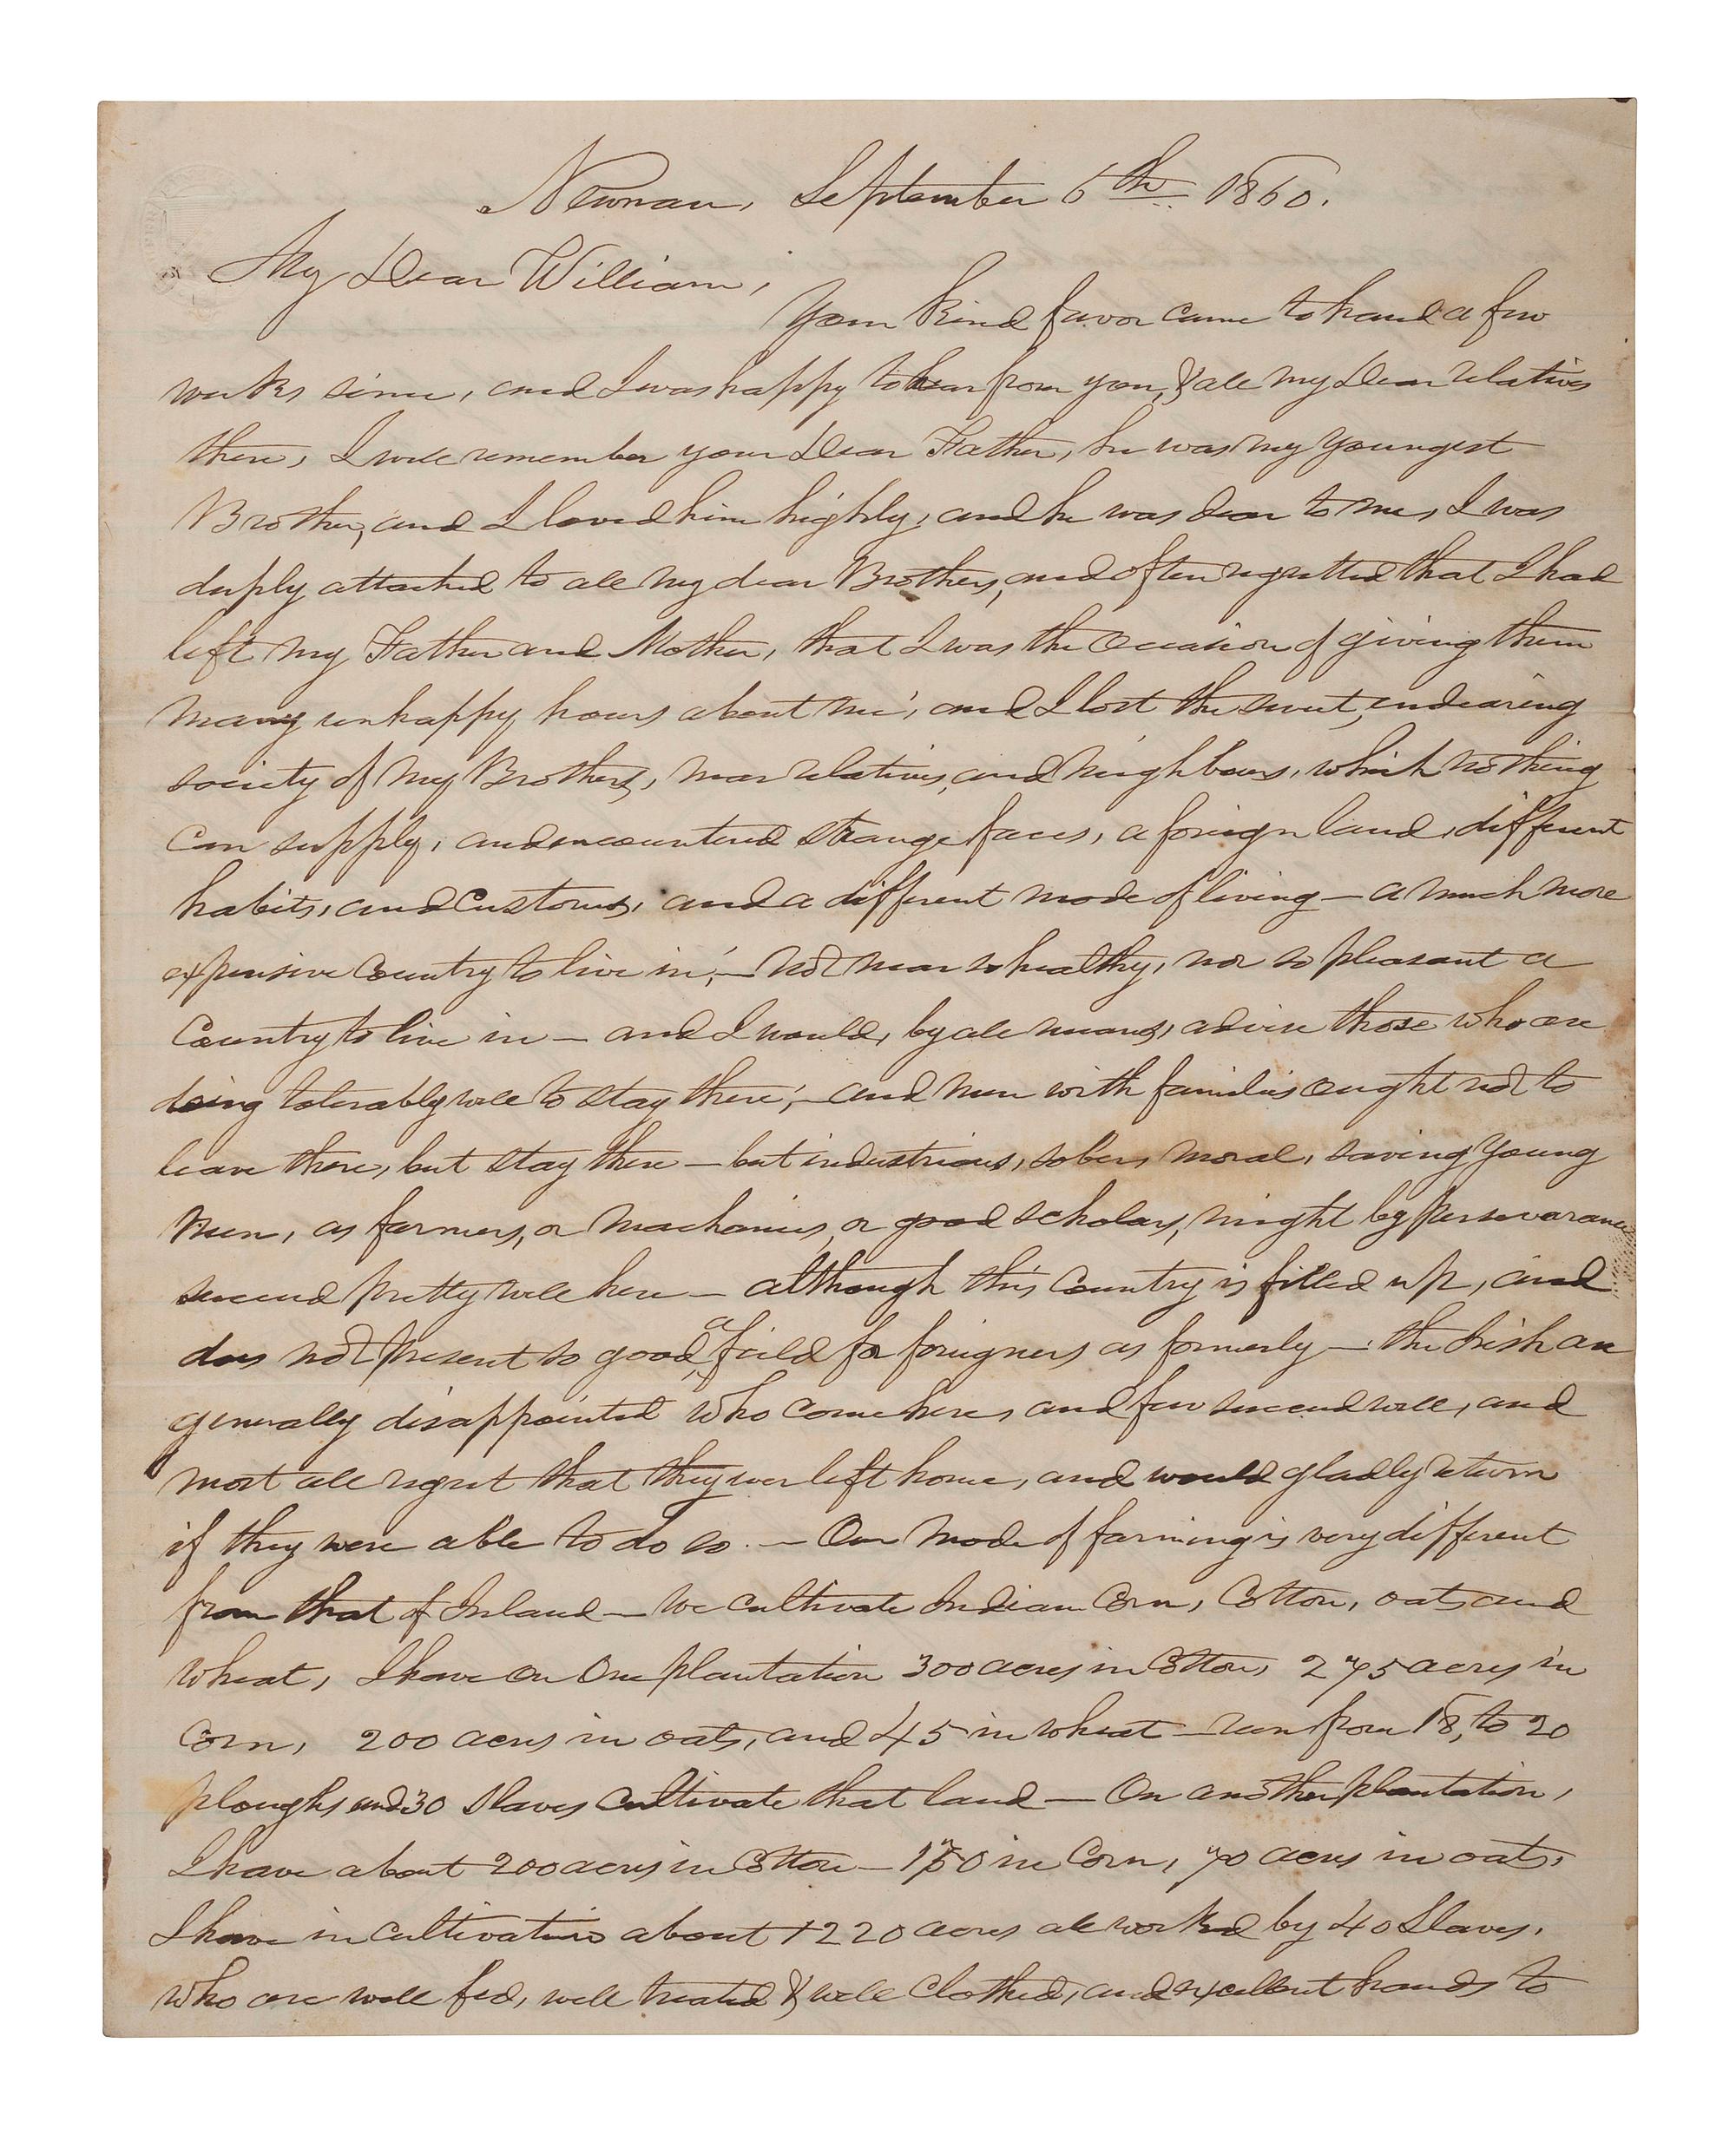 Newnan, September 6th 1860.
My Dear William,
Your kind favor came to hand a few
weeks since, and I was happy to hear from you, & all my Dear relatives
there, I well remember your Dear Father, he was my youngest
Brother, and I loved him highly, and he was dear to me, I was
deeply attached to all my dear Brothers, and often regretted that I had
left my Father and Mother, that I was the occasion of giving them
many unhappy hours about me; and I lost the sweet, endearing
society of my Brothers, near relatives, and neighbours, which nothing
can supply, and encountered strange faces, a foreign land, different
habits, and customs, and a different mode of living — a much more
expensive Country to live in; — not near so healthy, nor so pleasant a
Country to live in — and I would, by all means, advise those who are
doing tolerably well to stay there; — and men with families ought not to
leave there, but stay there — but industrious, sober, moral, saving young
men, as farmers, or machanics, or good scholars, might by perseverance
succeed pretty well here — although this Country is filled up, and
does not present so good a field for foreigners as formerly — the Irish are
generally disappointed who come here, and few succeed well, and
most all regret that they ever left home, and would gladly return
if they were able to do so. — Our mode of farming is very different
from that of Ireland — we cultivate Indian Corn, Cotton, oats and
wheat, I have on One plantation 300 acres in Cotton, 275 acres in
Corn, 200 acres in oats, and 45 in wheat — run from 18, to 20
ploughs and 30 Slaves cultivate that land — On another plantation,
I have about 200 acres in Cotton — in Corn, 70 acres in oats,
I have in cultivation about 1220 acres all worked by 40 Slaves,
who are well fed, well treated & well clothed, and excellent hands to